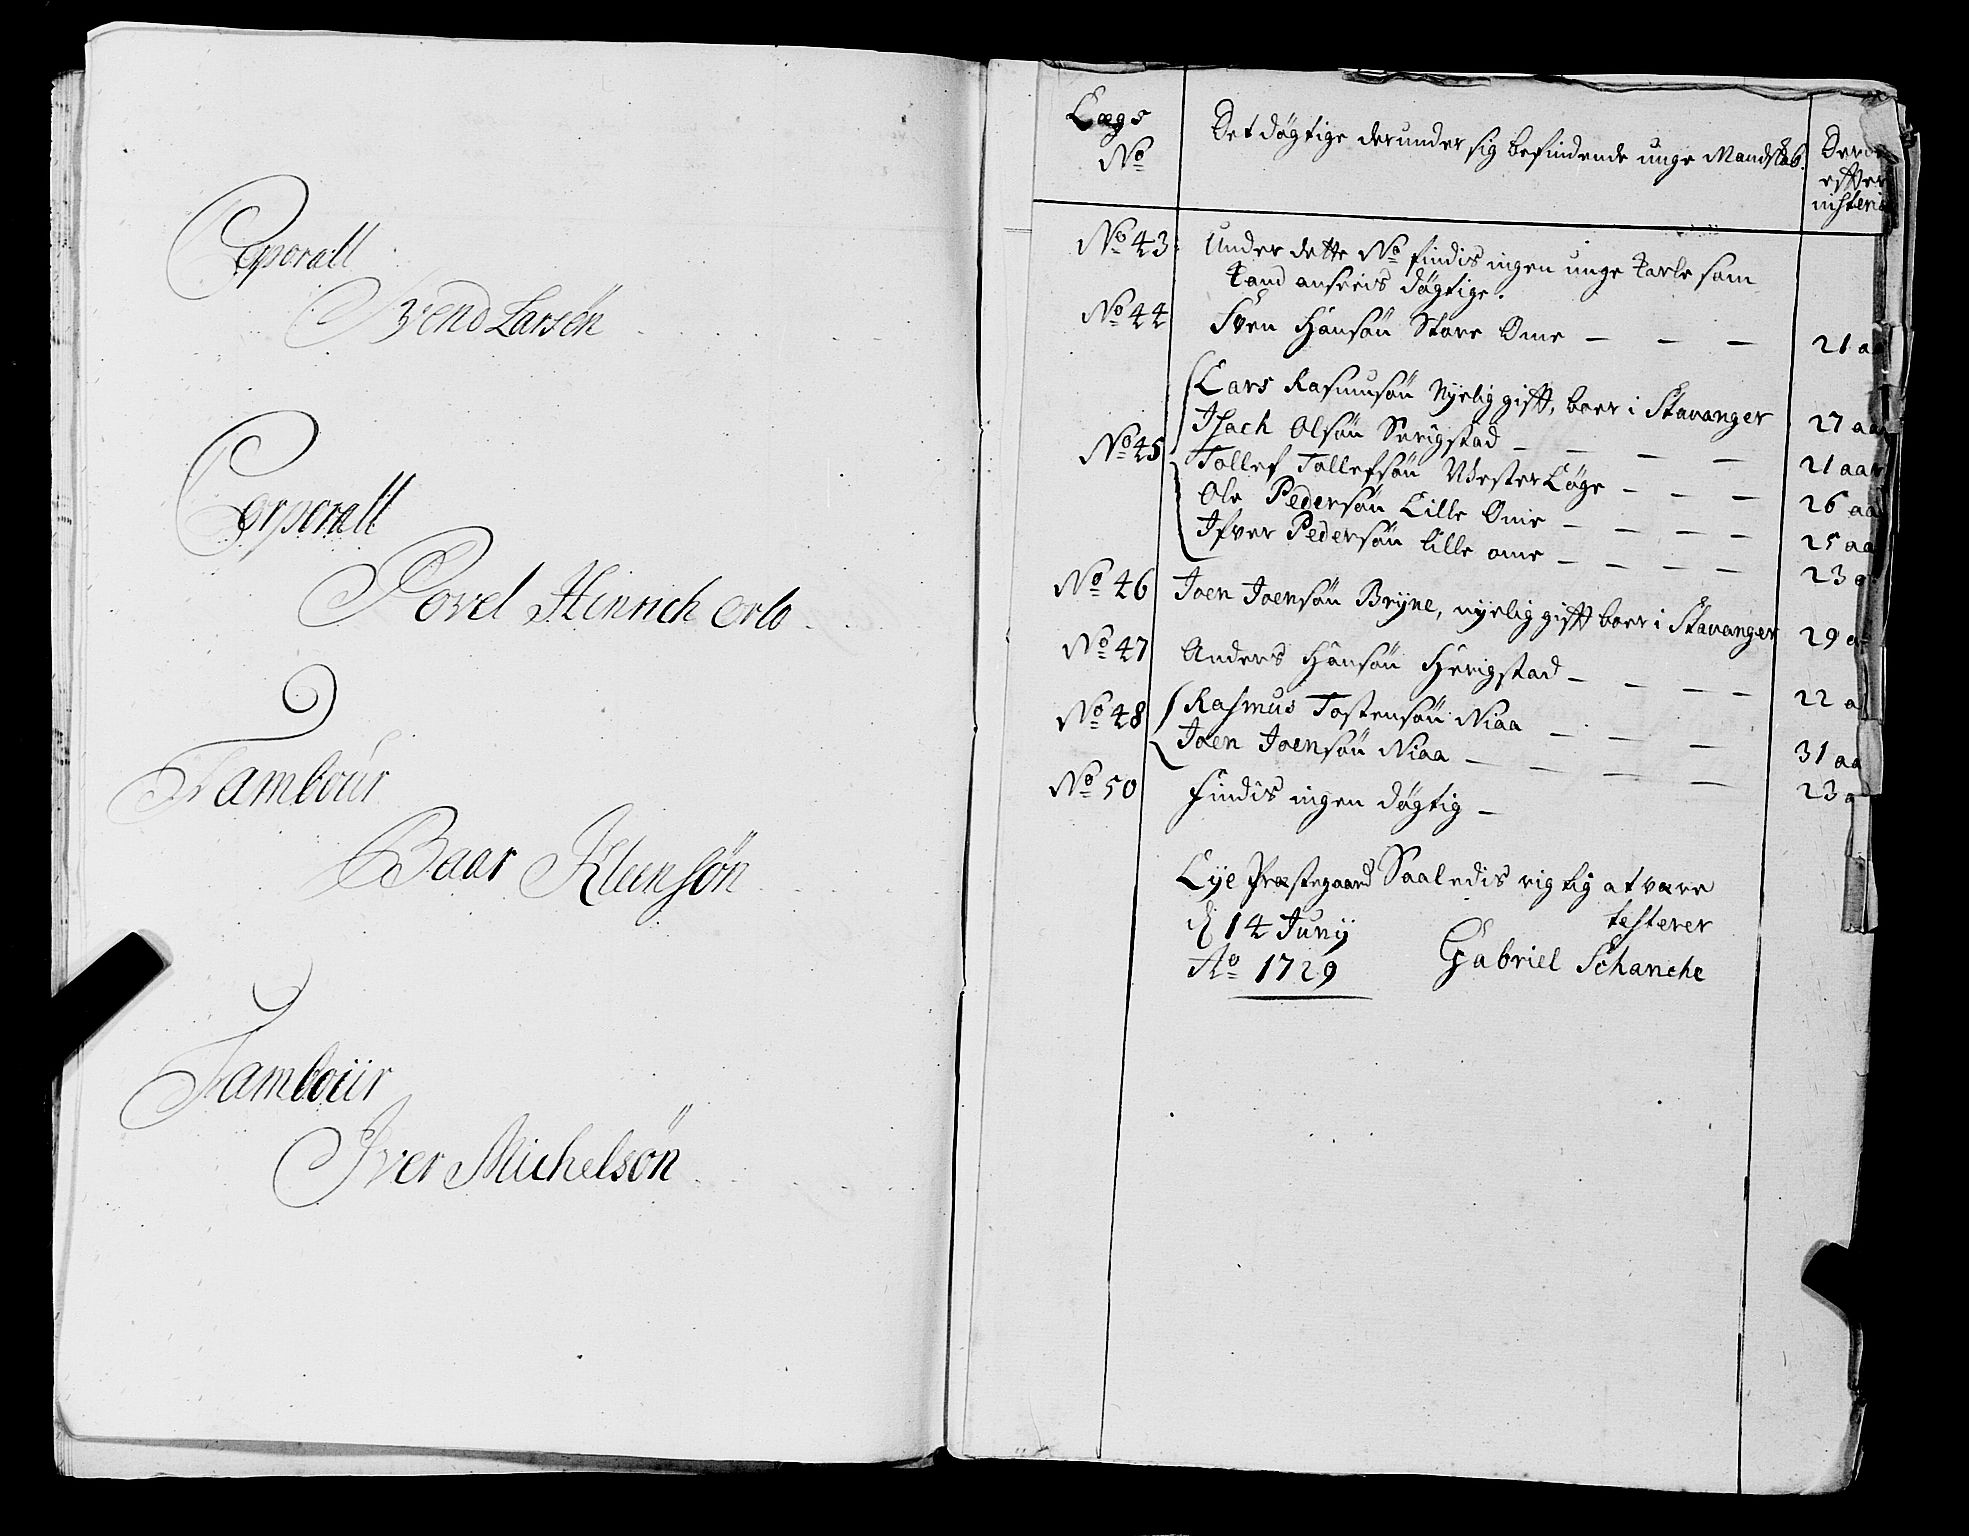 Corporall
Svend Larsön
Corporall
Povel Hinrich Orlo
Tambour
Baar Kleensön
Tambour
Iver Michelsön
Lægs
No
Det døgtige derunder sig befindende unge Mandskab.
Deres
effter
No 43: Under dette No findis ingen unge Karle som
Kand anseeis døgtige.
No 44 Sven Hansøn Store Ome — — — 21 aa
Lars Rasmusøn Nyelig gifft, boer i Stavanger 27 aa
No 45 Isach Olsøn Serigstad — — — — 21 aar
Tollef Tollefsøn Wester Løge — — — 26 aa
Ole Pedersøn Lille Ome — — — — 25 aa
Ifver Pedersøn Lille ome — — — — 23 a
No 46 Joen Joensøn Bryne, nyelig gifft boer i Stavanger 29 a
No 47 Anders Hansøn Herigstad — — — — 22 a
No 48 Rasmus Tostensøn Niaa — — — 31 aa
Joen Joensøn Niaa — — — — 23 a
No 50 findis ingen døgtig —
Lye Præstegaard Saaledis rigtig at være
d 14 Juny testerer
Ao 1729 Gabriel Schanche